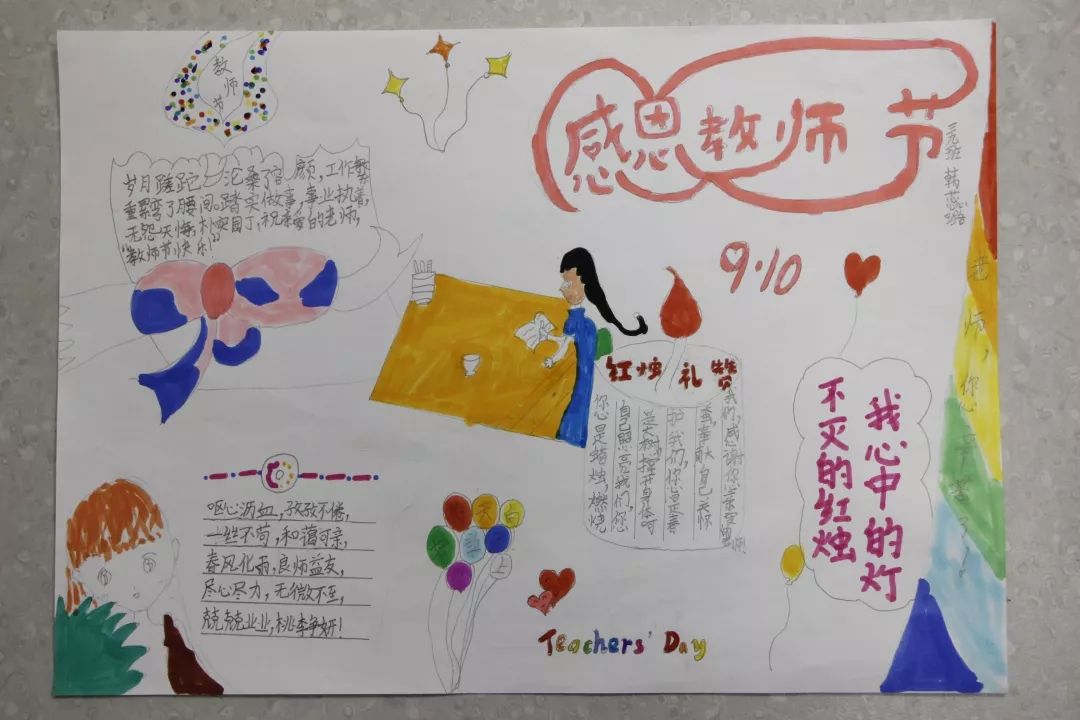 教师节
感恩教师节
岁月蹉跎, 沧桑了容颜,工作繁
重累弯了腰间。踏实做事,事业执着,
无怨无悔,朴实园丁,祝亲爱的老师,
"教师节快乐!"
9.10
红烛礼赞
我们,感谢你
蚕,奉献自己关怀
护我们,你总是春
是大树,撑开身体呵
自己照亮我们,您
您是蜡烛,燃烧
我心中的灯
不灭的红烛
老师,您辛苦了!
呕心沥血,孜孜不倦,
一丝不苟,和蔼可亲,
春风化雨,良师益友,
尽心尽力,无微不至,
兢兢业业,桃李争妍!
天
向
上
Teachers' Day